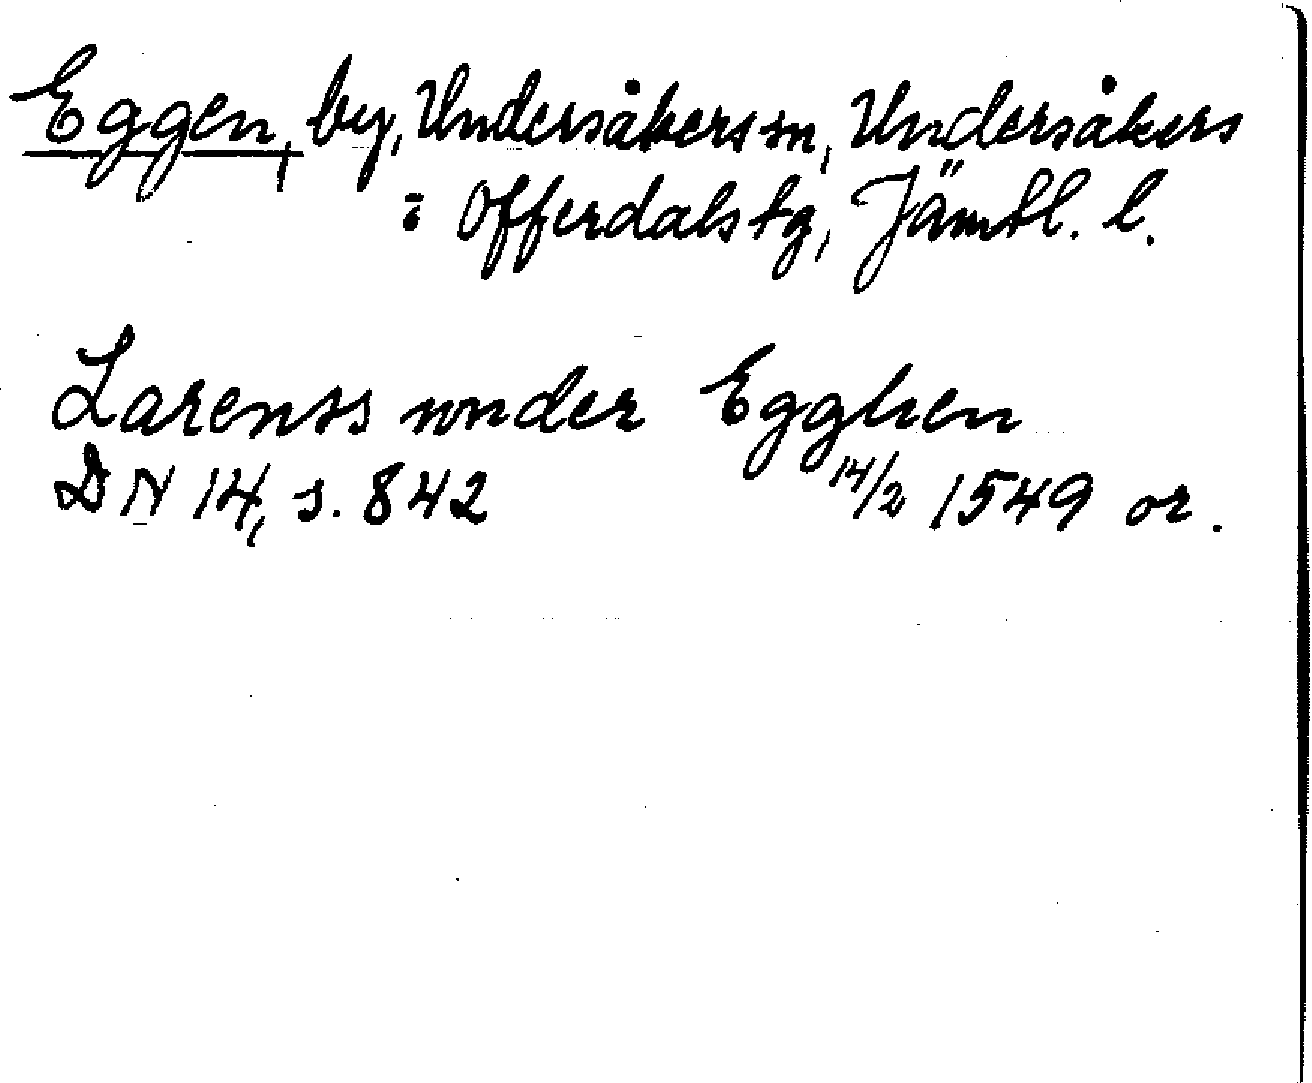 Eggen, by, Undersåkers sn, Undersåkers
: Offerdals tg, Jämtl. l.
Larenss wnder Egghen
DN 14, s. 842 14/2 1549 or.